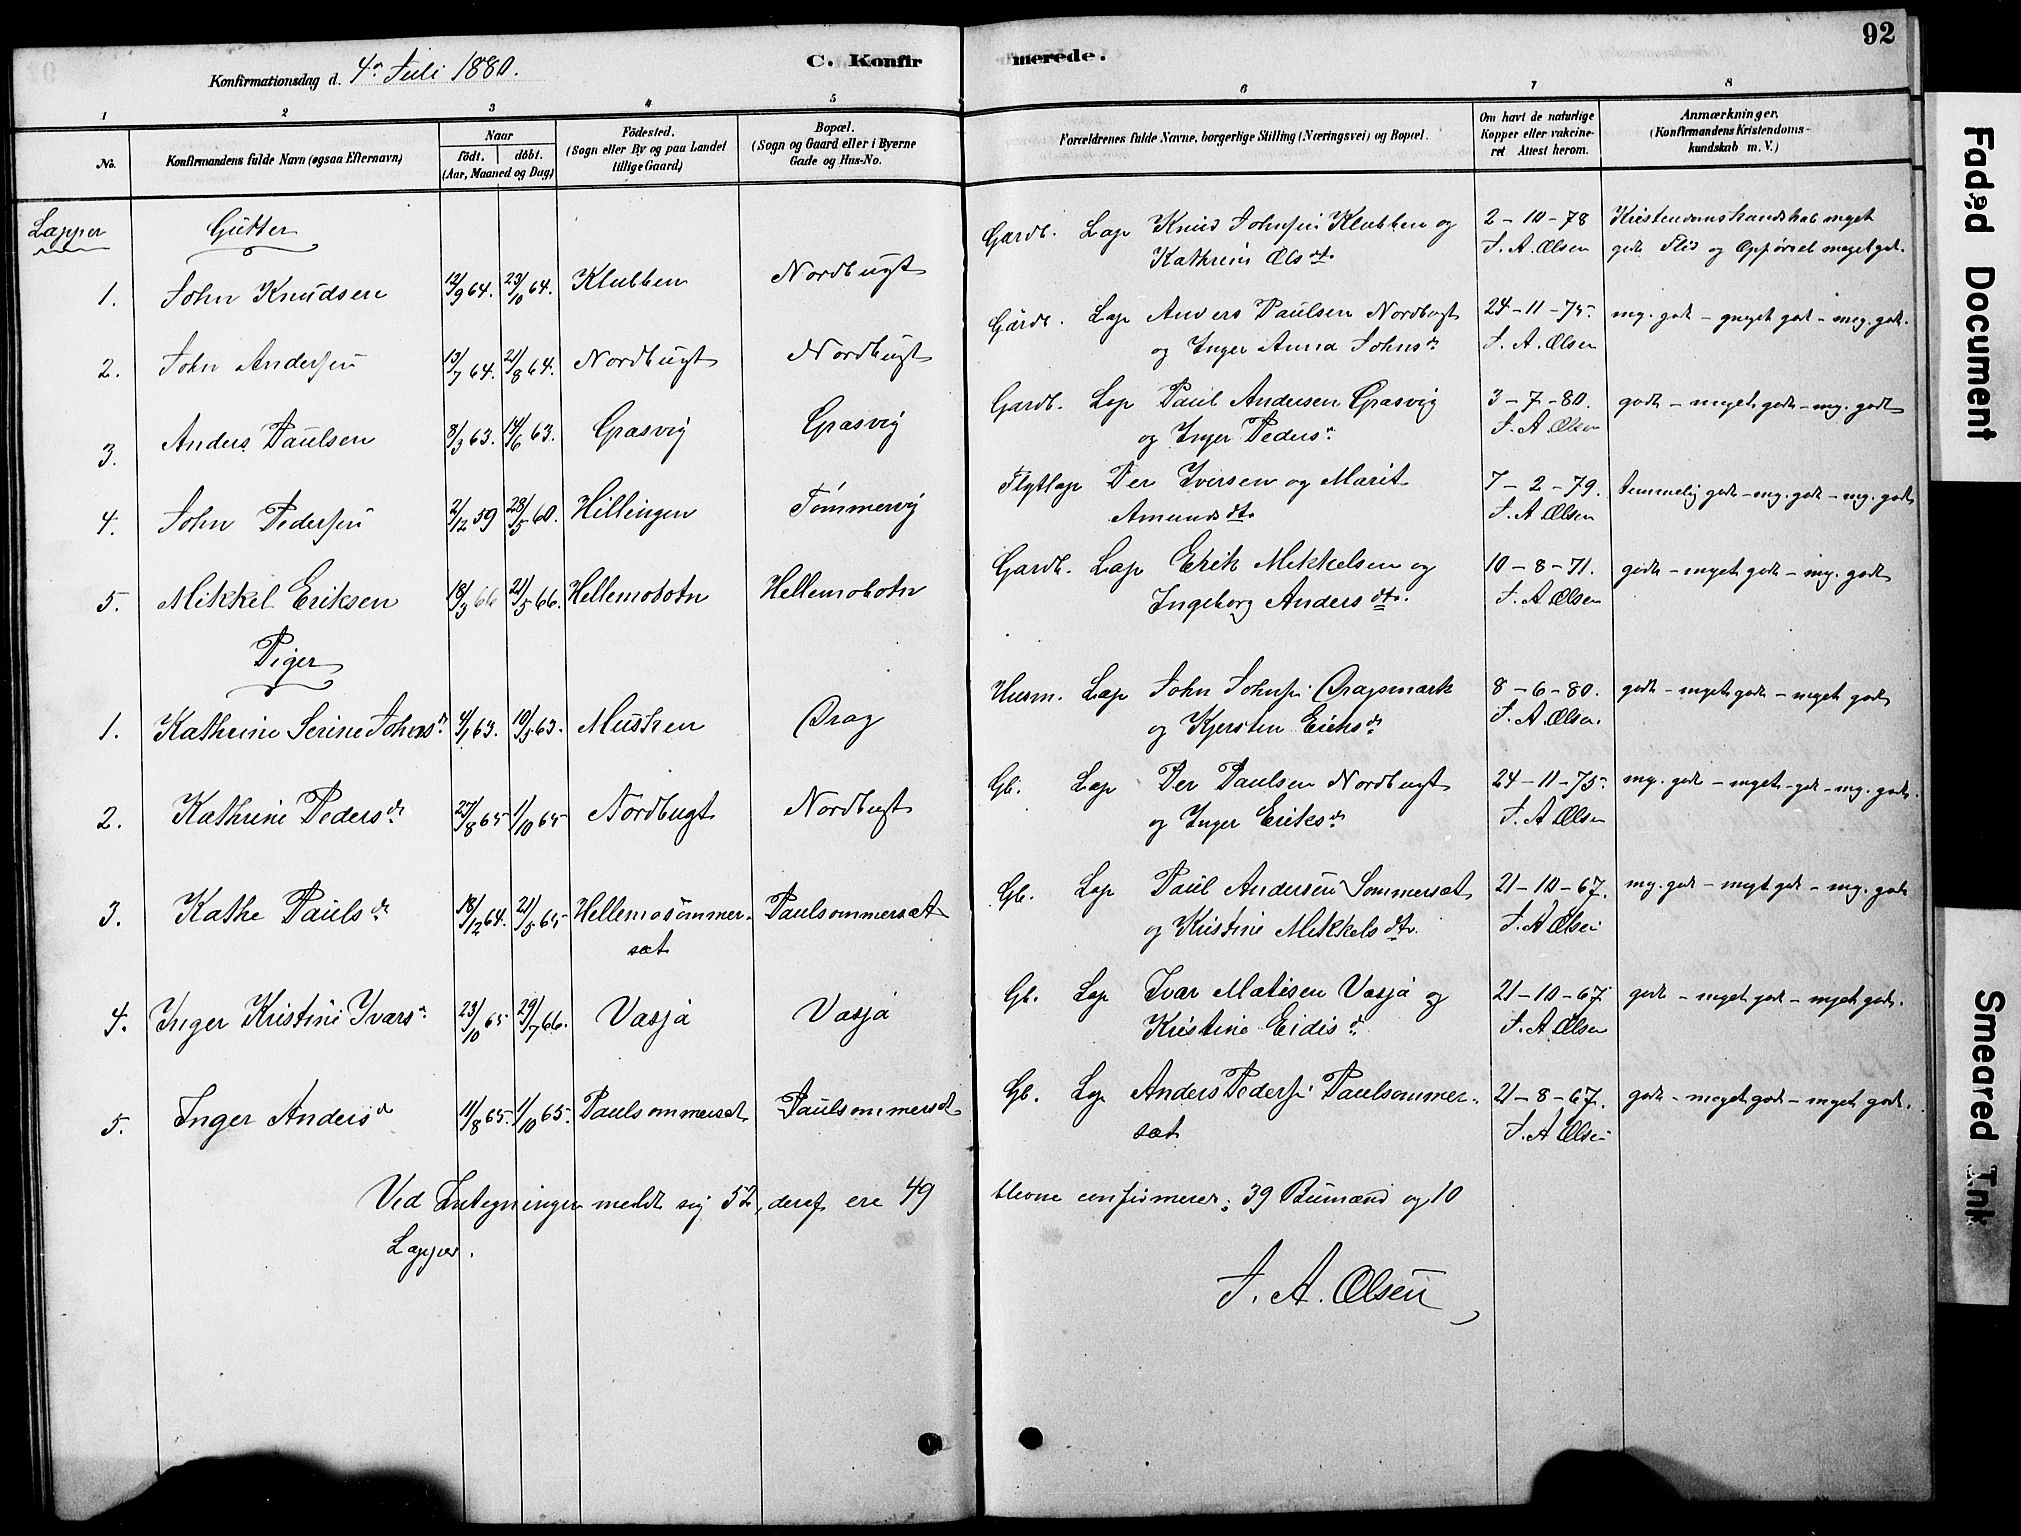 92
Konfirmationsdag d. 4de Juli 1880.
C. Konfirmerede.
1 2 3 4 5 6 7 8
No.
Konfirmandens fulde Navn (ogsaa Efternavn)
Naar
født. døbt.
(Aar, Maaned og Dag)
Fødested.
(Sogn eller By og paa Landet
tillige Gaard)
Bopæl.
(Sogn og Gaard eller i Byerne
Gade og Hus-No.
Forældrenes fulde Navne, borgerlige Stilling (Næringsvei) og Bopæl.
Om havt de naturlige
Kopper eller vakcine-
ret Attest herom.
Anmærkninger.
(Konfirmandens Kristendoms-
kundskab m. V.)
Lapper
Gutter
1. John Knudsen 12/9 64. 23/10 64. Klubben Nordbugt Gardb. Lap Knud Johnsen Klubben og Kathrine Olsdt. 2-10-78 J. A. Olsen Kristendomskundskab meget godt Flid og Opførsel meget god.
2. John Andersen 13/7 64. 21/8 64. Nordbugt Nordbugt Gårdb. Lap Anders Paulsen Nordbugt og Inger Anna Johnsd. 24-11-75. J. A. Olsen mg. godt - meget god - meg. god.
3. Anders Paulsen 8/3 63. 14/6 63. Grasvig Grasvig Gardb. Lap Paul Andersen Grasvig og Inger Pedersd. 3-7-80. J. A. Olsen godt - meget god - mg. god
4. John Pedersen 2/12 59 28/5 60. Hillingen Tømmervig Flytlap Per Iversen og Marit Amundsdt. 7-2-79. J. A. Olsen temmelig godt - mg. god - mg. god
5. Mikkel Eriksen 18/3 66 21/5 66. Hellemobotn Hellemobotn Gardb. Lap Erik Mikkelsen og Ingeborg Andersdt. 10-8-71. J. A. Olsen godt - meget god - mg. god
Piger
1. Kathrine Serine Johnsd. 4/1 63. 10/5 63. Musken Drag Husm. Lap John Johnsen Dragsmark og Kjersten Eriksd. 8-6-80. J. A. Olsen. godt - meget god - meget god
2. Kathrine Pedersd. 27/8 65 1/10 65 Nordbugt Nordbugt Gb. Lap Per Paulsen Nordbugt og Inger Eriksd. 24-11-75. J. A. Olsen mg. godt - meget god - mg. god.
3. Kathe Paulsd. 18/12 64. 21/5 65 Hellemosommersæt Paulsommersæt Gb. Lap Paul Andersen Sommersæt og Kristine Mikkelsdt. 21-10-67. J. A. Olsen mg. godt - meget god - mg. god
4. Inger Kristine Ivarsd. 23/10 65 29/7 66. Vasjå Vasjå Gb. Lap Ivar Matisen Vasjå og Kristine Eidisd. 21-10-67. J. A. Olsen godt - meget god - meget god.
5. Inger Andersd. 11/8 65. 1/10 65. Paulsommersæt Paulsommersæt Gb. Lap Anders Pedersen Paulsommersæt 21-8-67. J. A. Olsen godt - meget god - meget god.
Ved Indtegningen meldte sig 52, deraf ere 49 blevne confirmerede: 39 Bumænd og 10
Lapper.
J. A. Olsen
Faded Document
Smeared Ink